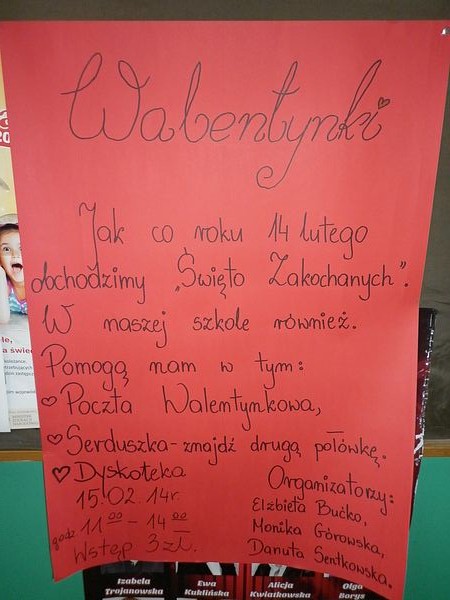 Walentynki
Jak co roku 14 lutego
obchodzimy „Święto Zakochanych”.
W naszej szkole również.
Pomogą nam w tym:
♡ Poczta Walentynkowa,
♡ Serduszka - znajdź drugą połówkę.
♡ Dyskoteka
15.02.14r.
godz. 11 00 – 14 00
Wstęp 3 zł.
Organizatorzy:
Elżbieta Bućko,
Monika Górowska,
Danuta Sentkowska.
Izabela
Trojanowska
Ewa
Kuklińska
Alicja
Kwiatkowska
Olga
Borys